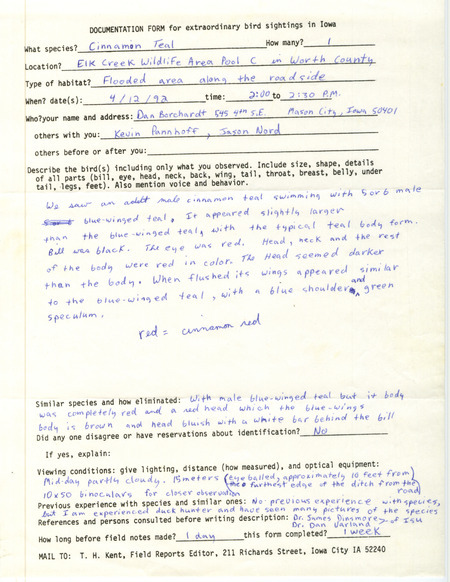 DOCUMENTATION FORM for extraordinary bird sightings in Iowa
What species? Cinnamon Teal How many? 1
Location? Elk Creek Wildlife Area Pool C in Worth County
Type of habitat? Flooded area along the roadside
When? date(s): 4/12/92 time: 2:00 to 2:30 P.M.
Who?your name and address: Dan Borchardt 545 4th S.E. Mason City, Iowa 50401
others with you: Kevin Pannhoff, Jason Nord
others before or after you:
Describe the bird(s) including only what you observed. Include size, shape, details
of all parts (bill, eye, head, neck, back, wing, tail, throat, breast, belly, under
tail, legs, feet). Also mention voice and behavior.
We saw an adult male cinnamon teal swimming with 5 or 6 male
blue-winged teal. It appeared slightly larger
than the blue-winged teal, with the typical teal body form.
Bill was black. The eye was red. Head, neck and the rest
of the body were red in color. The Head seemed darker
than the body. When flushed its wings appeared similar
to the blue-winged teal, with a blue shoulder and green
speculum.
red = cinnamon red
Similar species and how eliminated: With male blue-winged teal but it body
was completely red and a red head which the blue-wings
body is brown and head bluish with a white bar behind the bill
Did any one disagree or have reservations about identification? No
If yes, explain:
Viewing conditions: give lighting, distance (how measured), and optical equipment:
Mid-day partly cloudy. 15 meters (eye balled, approximately 10 feet from
the furthest edge of the ditch from the road)
10x50 binoculars for closer observation
Previous experience with species and similar ones: No previous experience with species,
but I am experienced duck hunter and have seen many pictures of the species
References and persons consulted before writing description: Dr. James Dinsmore of ISU
Dr. Dan Varland
How long before field notes made? 1 day this form completed? 1 week
MAIL TO: T. H. Kent, Field Reports Editor, 211 Richards Street, Iowa City IA 52240